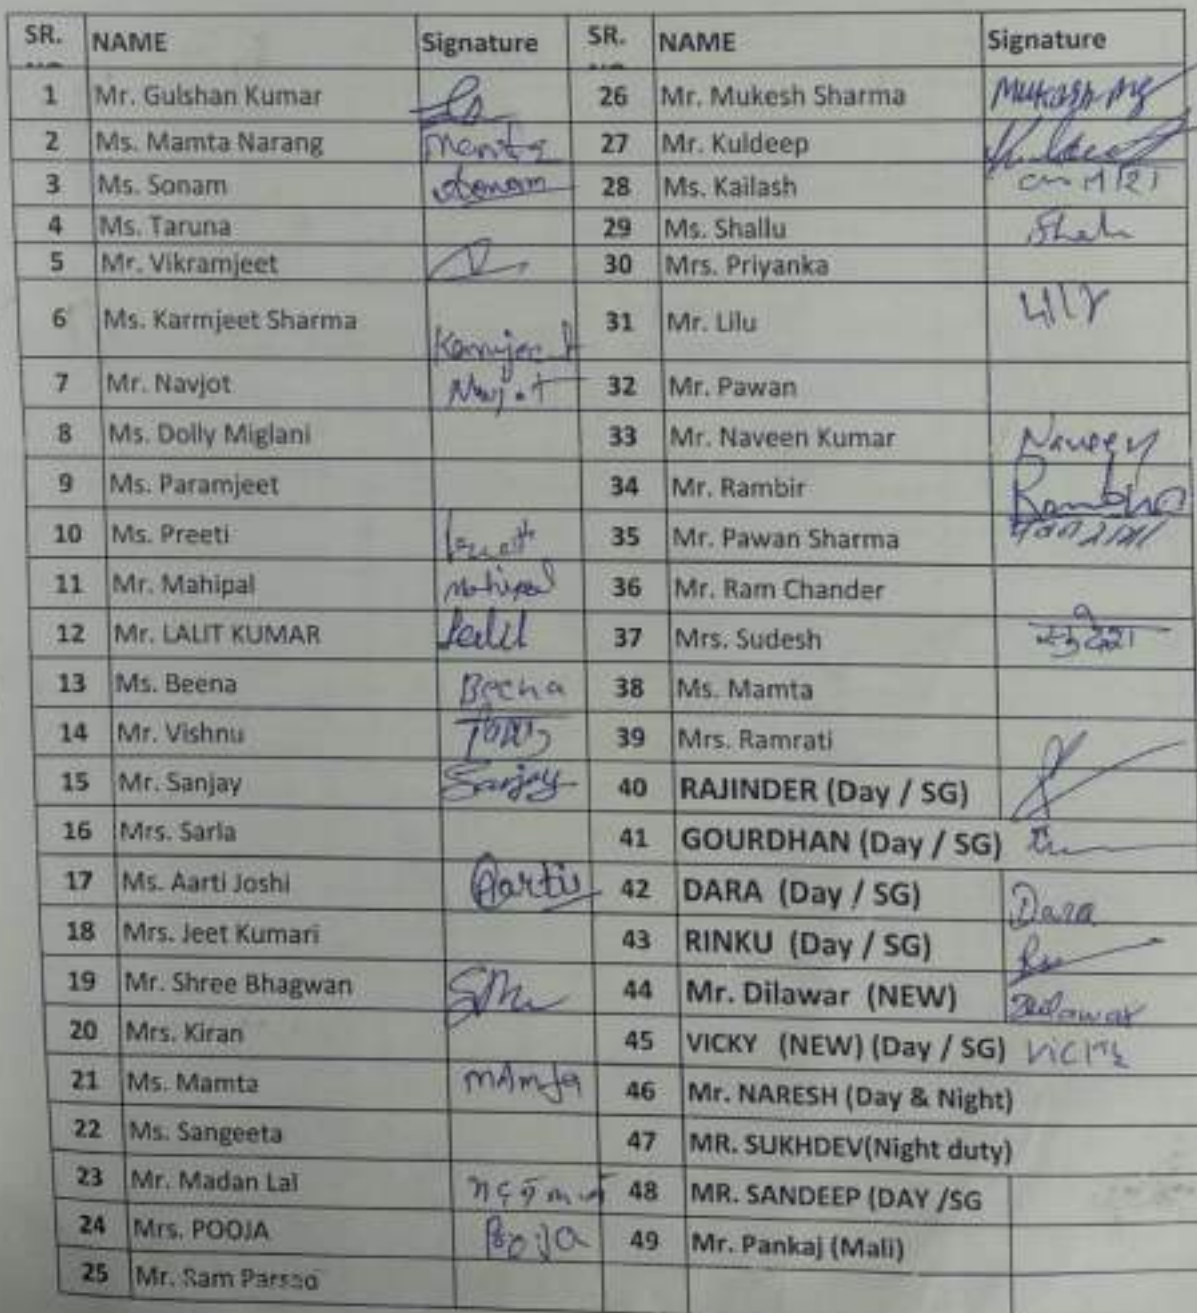 SR. NAME Signature SR. NAME Signature
1 Mr. Gulshan Kumar 26 Mr. Mukesh Sharma
2 Ms. Mamta Narang Mamta 27 Mr. Kuldeep Kuldeep
3 Ms. Sonam Sonam 28 Ms. Kailash
4 Ms. Taruna 29 Ms. Shallu
5 Mr. Vikramjeet 30 Mrs. Priyanka
6 Ms. Karmjeet Sharma 31 Mr. Lilu
7 Mr. Navjot Navjot 32 Mr. Pawan
8 Ms. Dolly Miglani 33 Mr. Naveen Kumar Naveen
9 Ms. Paramjeet 34 Mr. Rambir
10 Ms. Preeti 35 Mr. Pawan Sharma
11 Mr. Mahipal Mahipal 36 Mr. Ram Chander
12 Mr. LALIT KUMAR Lalit 37 Mrs. Sudesh सुदेश
13 Ms. Beena Beena 38 Ms. Mamta
14 Mr. Vishnu 39 Mrs. Ramrati
15 Mr. Sanjay Sanjay 40 RAJINDER (Day / SG)
16 Mrs. Sarla 41 GOURDHAN (Day / SG)
17 Ms. Aarti Joshi Aarti 42 DARA (Day / SG) Dara
18 Mrs. Jeet Kumari 43 RINKU (Day / SG)
19 Mr. Shree Bhagwan 44 Mr. Dilawar (NEW) Dilawar
20 Mrs. Kiran 45 VICKY (NEW) (Day / SG)
21 Ms. Mamta MAmta 46 Mr. NARESH (Day & Night)
22 Ms. Sangeeta 47 MR. SUKHDEV(Night duty)
23 Mr. Madan Lal 48 MR. SANDEEP (DAY /SG
24 Mrs. POOJA PooJa 49 Mr. Pankaj (Mali)
25 Mr. Ram Parsad